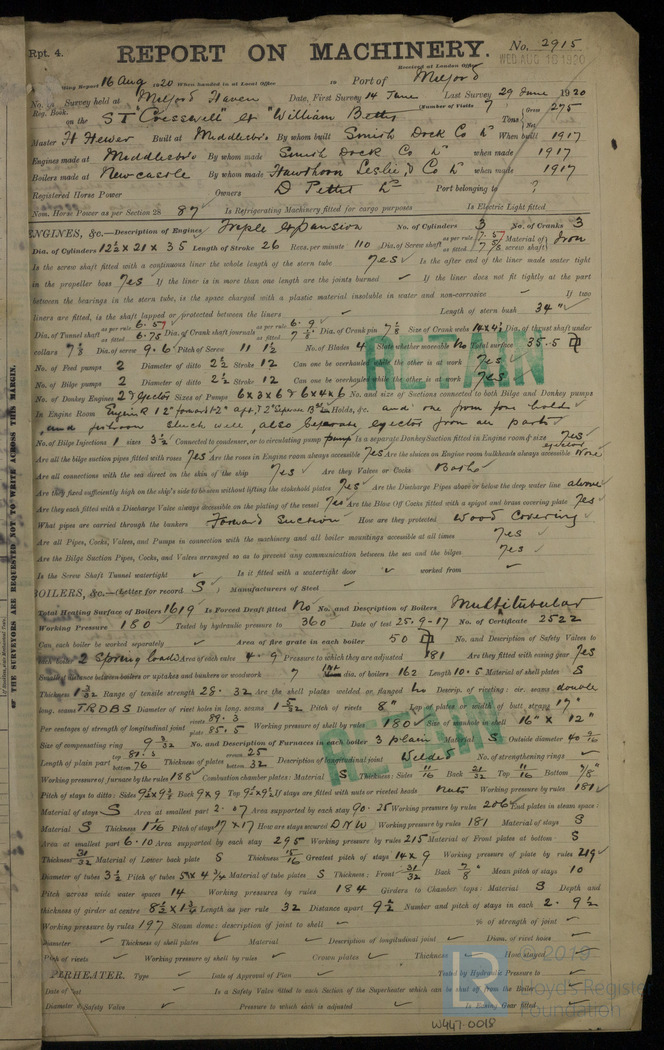 Rpt. 4.
REPORT ON MACHINERY.
No. 2915
Received at London Office
WED. AUG. 18 1920
Writing Report 16 Aug 1920 When handed in at Local Office 10 Port of Milford
No. in Survey held at Milford Haven Date, First Survey 14 June Last Survey 29 June 1920
Reg. Book. (Number of Visits 7
on the ST "Cresswell" ex "William Betts" Tons Gross 275 Net
Master H Hewer Built at Middlesbro By whom built Smith Dock Co Ld When built 1917
Engines made at Middlesbro By whom made Smith Dock Co Ld when made 1917
Boilers made at Newcastle By whom made Hawthorn Leslie & Co Ld when made 1917
Registered Horse Power Owners D Pettit Ld Port belonging to ?
Nom. Horse Power as per Section 28 87 Is Refrigerating Machinery fitted for cargo purposes Is Electric Light fitted
ENGINES, &c.—Description of Engines Triple Expansion No. of Cylinders 3 No. of Cranks 3
Dia. of Cylinders 12½ x 21 x 35 Length of Stroke 26 Revs. per minute 110 Dia. of Screw shaft as per rule 7.57 as fitted 7⅝ Material of screw shaft Iron
Is the screw shaft fitted with a continuous liner the whole length of the stern tube Yes Is the after end of the liner made water tight
in the propeller boss Yes If the liner is in more than one length are the joints burned If the liner does not fit tightly at the part
between the bearings in the stern tube, is the space charged with a plastic material insoluble in water and non-corrosive If two
liners are fitted, is the shaft lapped or protected between the liners Length of stern bush 34"
Dia. of Tunnel shaft as per rule 6.57 as fitted 6.75 Dia. of Crank shaft journals as per rule 6.9 as fitted Dia. of Crank pin 7⅛ Size of Crank webs 14 x 4½ Dia. of thrust shaft under
collars 7⅛ Dia. of screw 9.6 Pitch of Screw 11 1½ No. of Blades 4 State whether moveable No Total surface 35.5
No. of Feed pumps 2 Diameter of ditto 2½ Stroke 12 Can one be overhauled while the other is at work Yes
No. of Bilge pumps 2 Diameter of ditto 2½ Stroke 12 Can one be overhauled while the other is at work Yes
No. of Donkey Engines 2 & Ejector Sizes of Pumps 6 x 3 x 6 & 6 x 4 x 6 No. and size of Suctions connected to both Bilge and Donkey pumps
In Engine Room In Holds, &c. and one from fore hold
and fishroom slush well, also separate ejector from all parts
No. of Bilge Injections 1 sizes 3½ Connected to condenser, or to circulating pump pump Is a separate Donkey Suction fitted in Engine room & size Yes ejector
Are all the bilge suction pipes fitted with roses Yes Are the roses in Engine room always accessible Yes Are the sluices on Engine room bulkheads always accessible None
Are all connections with the sea direct on the skin of the ship Yes Are they Valves or Cocks Both
Are they fixed sufficiently high on the ship's side to be seen without lifting the stokehold plates Yes Are the Discharge Pipes above or below the deep water line above
Are they each fitted with a Discharge Valve always accessible on the plating of the vessel Yes Are the Blow Off Cocks fitted with a spigot and brass covering plate Yes
What pipes are carried through the bunkers Forward Suction How are they protected Wood Covering
Are all Pipes, Cocks, Valves, and Pumps in connection with the machinery and all boiler mountings accessible at all times Yes
Are the Bilge Suction Pipes, Cocks, and Valves arranged so as to prevent any communication between the sea and the bilges Yes
Is the Screw Shaft Tunnel watertight Is it fitted with a watertight door worked from
BOILERS, &c.—(Letter for record S) Manufacturers of Steel
Total Heating Surface of Boilers 1619 Is Forced Draft fitted No No. and Description of Boilers Multitubular
Working Pressure 180 Tested by hydraulic pressure to 360 Date of test 25-9-17 No. of Certificate 2522
Can each boiler be worked separately Area of fire grate in each boiler 50 No. and Description of Safety Valves to
each boiler 2 Spring loaded Area of each valve 4.9 Pressure to which they are adjusted 181 Are they fitted with easing gear Yes
Smallest distance between boilers or uptakes and bunkers or woodwork 7 dia. of boilers 162 Length 10.5 Material of shell plates S
Thickness 1 3/32 Range of tensile strength 28.32 Are the shell plates welded or flanged No Descrip. of riveting: cir. seams double
long. seams TRDBS Diameter of rivet holes in long. seams 1 5/32 Pitch of rivets 8" Lap of plates or width of butt straps 17"
Per centages of strength of longitudinal joint rivets 89.3 plate 85.5 Working pressure of shell by rules 180 Size of manhole in shell 16" x 12"
Size of compensating ring 9 3/32 No. and Description of Furnaces in each boiler 3 plain Material S Outside diameter 40
Length of plain part top bottom 76 Thickness of plates crown 25 bottom 32 Description of longitudinal joint Welded No. of strengthening rings
Working pressure of furnace by the rules 188 Combustion chamber plates: Material S Thickness: Sides 11/16 Back 21/32 Top 11/16 Bottom 7/8"
Pitch of stays to ditto: Sides 9½ x 9½ Back 9 x 9 Top 9½ x 9½ If stays are fitted with nuts or riveted heads Nuts Working pressure by rules 181
Material of stays S Area at smallest part 2.07 Area supported by each stay 90.25 Working pressure by rules 206 End plates in steam space:
Material S Thickness 1 1/16 Pitch of stays 17 x 17 How are stays secured DNW Working pressure by rules 181 Material of stays S
Area at smallest part 6.10 Area supported by each stay 295 Working pressure by rules 215 Material of Front plates at bottom S
Thickness 31/32 Material of Lower back plate S Thickness 15/16 Greatest pitch of stays 14 x 9 Working pressure of plate by rules 219
Diameter of tubes 3½ Pitch of tubes 5 x 4¾ Material of tube plates S Thickness: Front 31/32 Back 7/8" Mean pitch of stays 10
Pitch across wide water spaces 14 Working pressures by rules 184 Girders to Chamber tops: Material S Depth and
thickness of girder at centre 8½ x 1¾ Length as per rule 32 Distance apart 9½ Number and pitch of stays in each 2. 9½
Working pressure by rules 197 Steam dome: description of joint to shell % of strength of joint
Diameter Thickness of shell plates Material Description of longitudinal joint Diam. of rivet holes
Pitch of rivets Working pressure of shell by rules Crown plates Thickness How stayed
SUPERHEATER. Type Date of Approval of Plan Tested by Hydraulic Pressure to
Date of Test Is a Safety Valve fitted to each Section of the Superheater which can be shut off from the Boiler
Diameter of Safety Valve Pressure to which each is adjusted Is Easing Gear fitted
RETAIN
RETAIN
OF THE SURVEYORS ARE REQUESTED NOT TO WRITE ACROSS THIS MARGIN.
© 2019
Lloyd's Register
Foundation
W447-0018